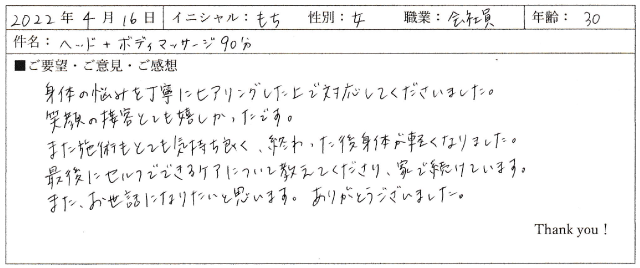 2022年4月16日 イニシャル：もち 性別：女 職業：会社員 年齢：30
件名：ヘッド＋ボディマッサージ90分
■ご要望・ご意見・ご感想
身体の悩みを丁寧にヒアリングした上で対応してくださいました。
笑顔の接客とても嬉しかったです。
また施術もとても気持ち良く、終わった後身体が軽くなりました。
最後にセルフでできるケアについて教えてくださり、家で続けています。
また、お世話になりたいと思います。ありがとうございました。
Thank you！